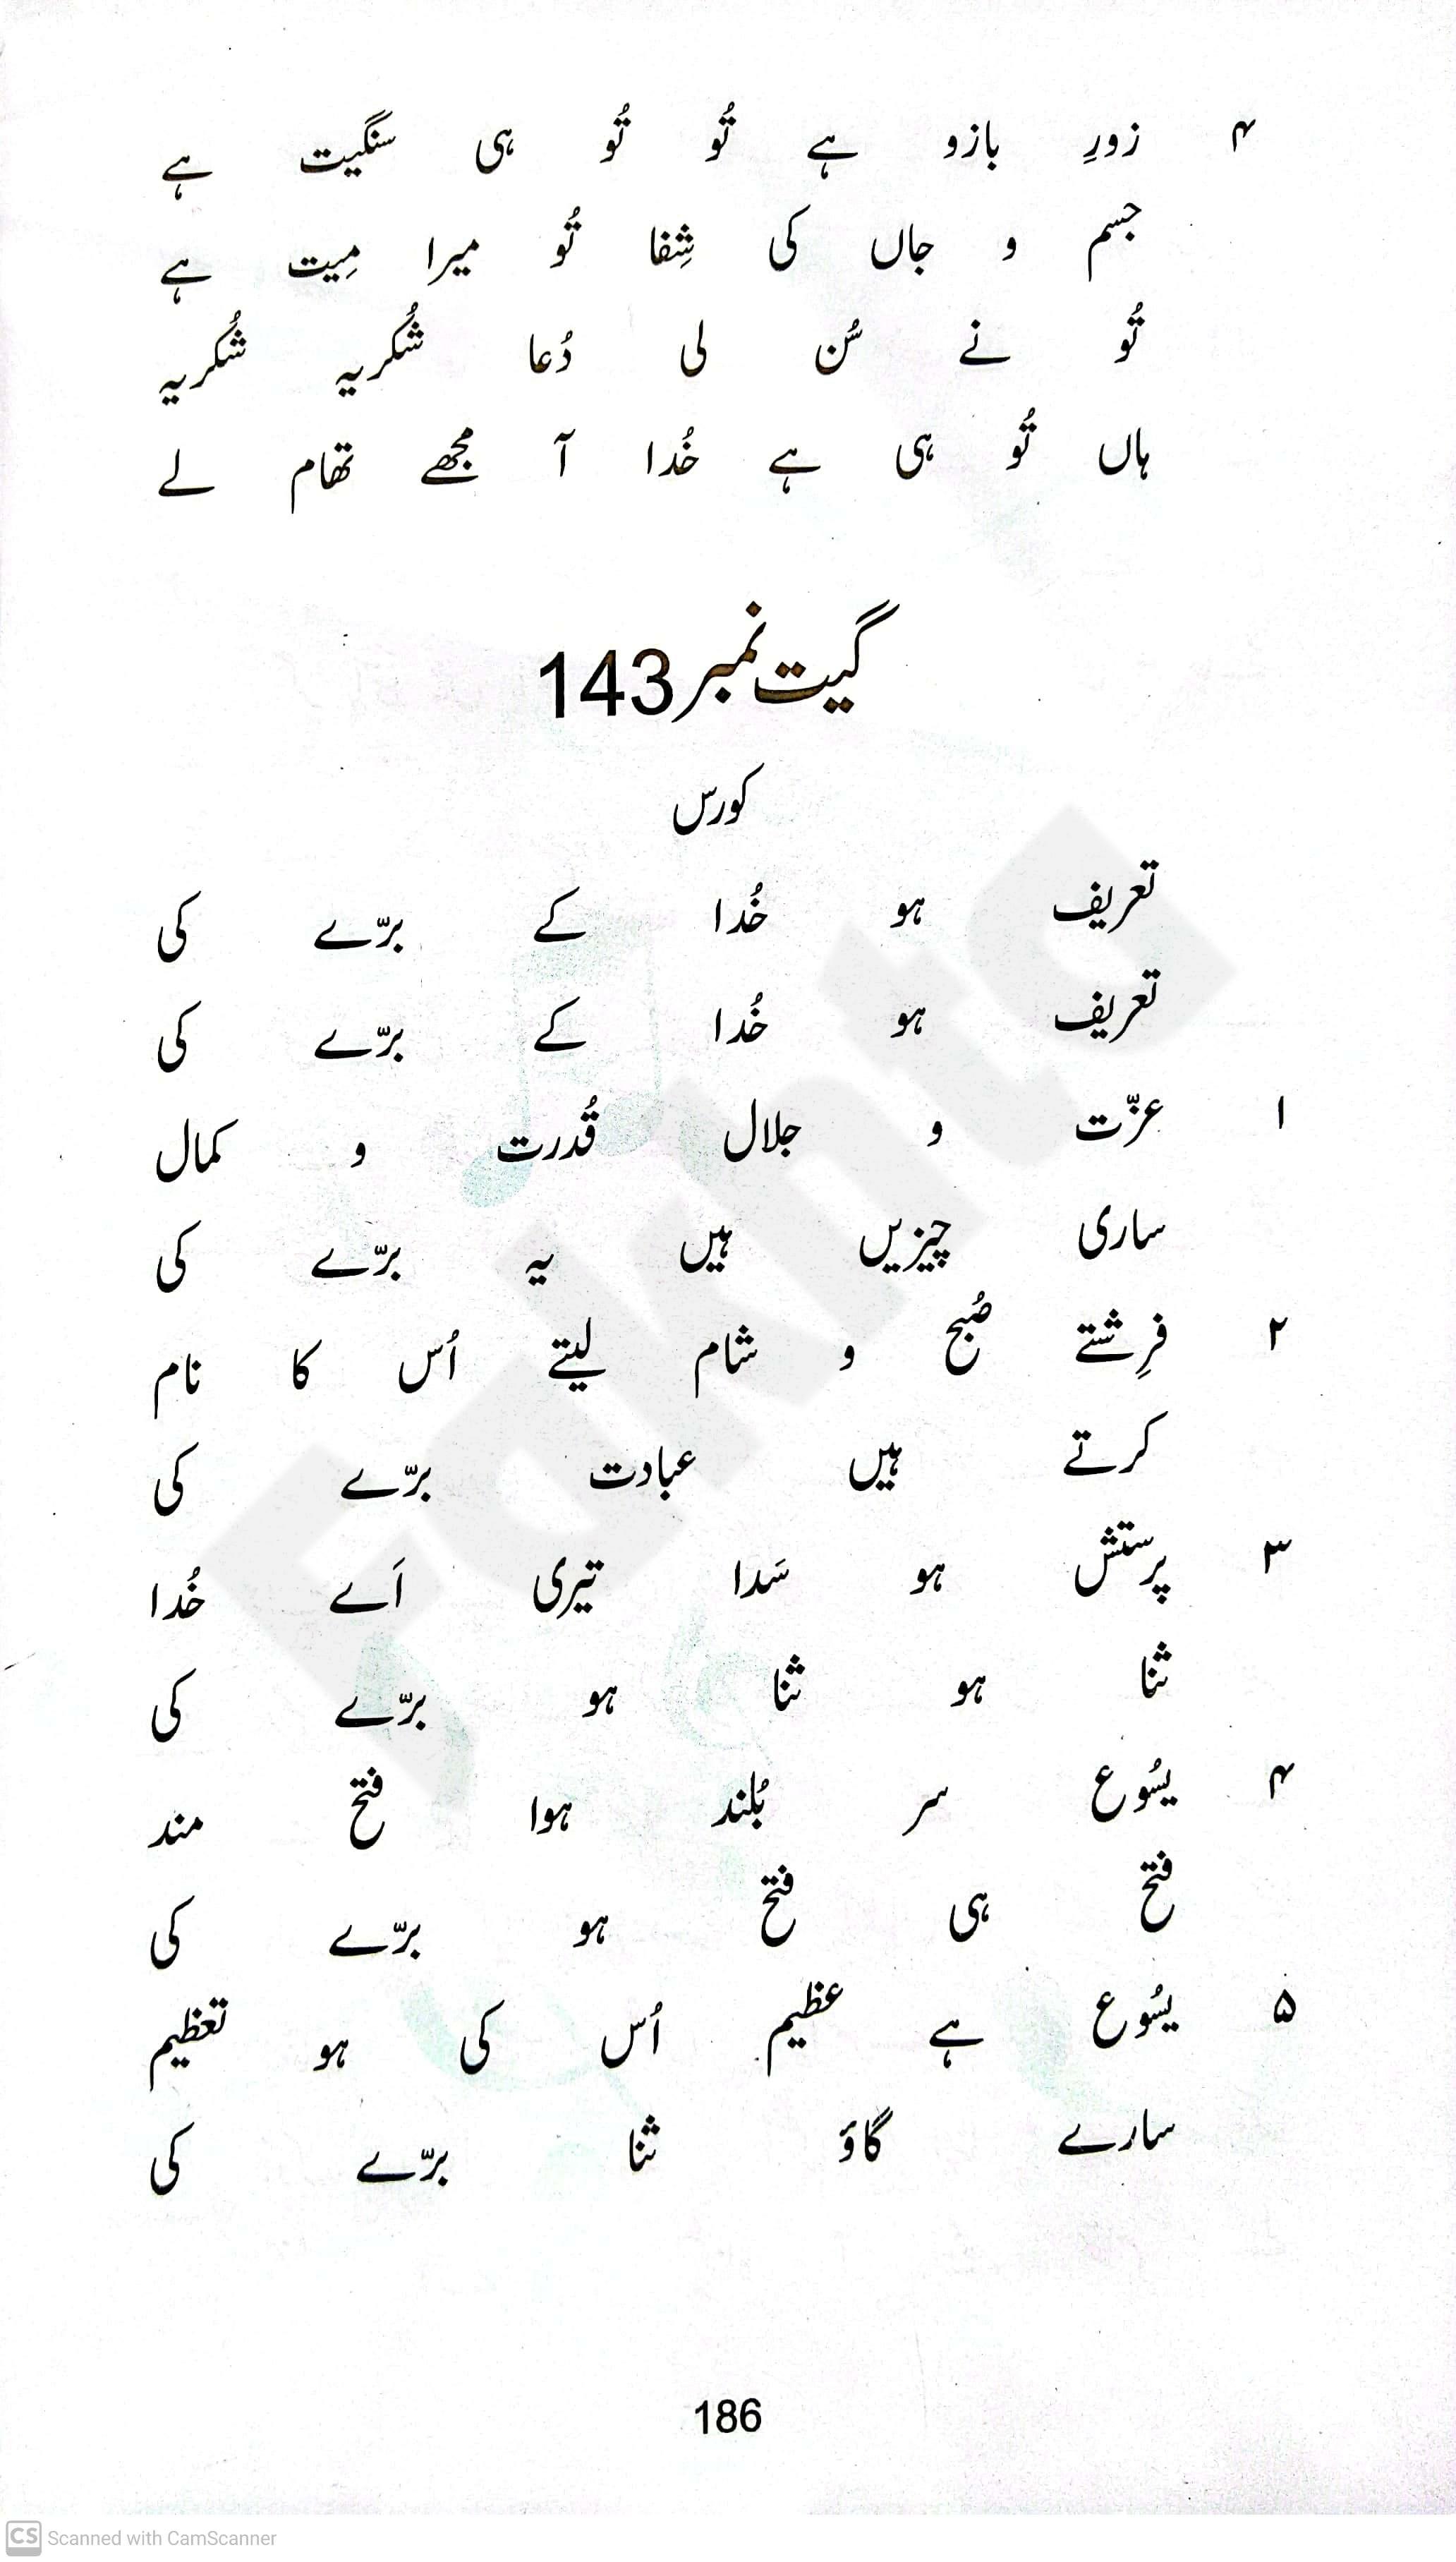 ۴ زورِ بازو ہے تُو تُو ہی سنگیت ہے
جسم و جاں کی شِفا تُو میرا مِیت ہے
تُو نے سُن لی دُعا شُکریہ شُکریہ
ہاں تُو ہی ہے خُدا آ مجھے تھام لے
گیت نمبر 143
کورس
تعریف ہو خُدا کے برّے کی
تعریف ہو خُدا کے برّے کی
۱ عزّت و جلال قُدرت و کمال
ساری چیزیں ہیں یہ برّے کی
۲ فرِشتے صُبح و شام لیتے اُس کا نام
کرتے ہیں عبادت برّے کی
۳ پرستش ہو سَدا تیری اَے خُدا
ثنا ہو ثنا ہو برّے کی
۴ یسُوع سر بُلند ہوا فتح مند
فتح ہی فتح ہو برّے کی
۵ یسُوع ہے عظیم اُس کی ہو تعظیم
سارے گاؤ ثنا برّے کی
Fakhta
186
CS Scanned with CamScanner